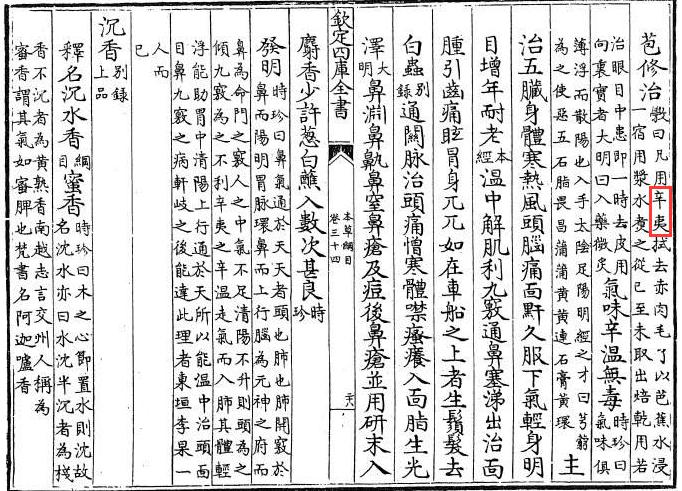 苞修治斅曰凡用辛夷拭去赤肉毛了以芭蕉水浸一宿用漿水煑之從巳至未取出焙乾用若
治眼目中患即一時去皮用向裏實者大明曰入藥微炙氣味辛溫無毒時珍曰氣味俱
薄浮而散陽也入手太陰足陽明經之才曰芎藭為之使惡五石脂畏昌蒲蒲黄黄連石膏黄環主
治五臟身體寒熱風頭腦痛面䵟久服下氣輕身明
目增年耐老本經溫中解肌利九竅通鼻塞涕出治面
腫引齒痛眩冒身兀兀如在車船之上者生鬚髮去
白蟲别錄通關脉治頭痛憎寒體噤瘙癢入面脂生光
澤大明鼻淵鼻鼽鼻窒鼻瘡及痘後鼻瘡並用研末入
欽定四庫全書
本草綱目
卷三十四
麝香少許葱白蘸入數次甚良時珍
發明時珍曰鼻氣通於天天者頭也肺也肺開竅於鼻而陽明胃脉環鼻而上行腦為元神之府而
鼻為命門之竅人之中氣不足清陽不升則頭為之傾九竅為之不利辛夷之辛溫走氣而入肺其體輕
浮能助胃中清陽上行通於天所以能溫中治頭面目鼻九竅之病軒岐之後能達此理者東垣李杲一
人而已
沉香别錄上品
釋名沉水香綱目蜜香時珍曰木之心節置水則沉故名沉水亦曰水沉半沉者為棧
香不沉者為黄熟香南越志言交州人稱為蜜香謂其氣如蜜脾也梵書名阿迦嚧香